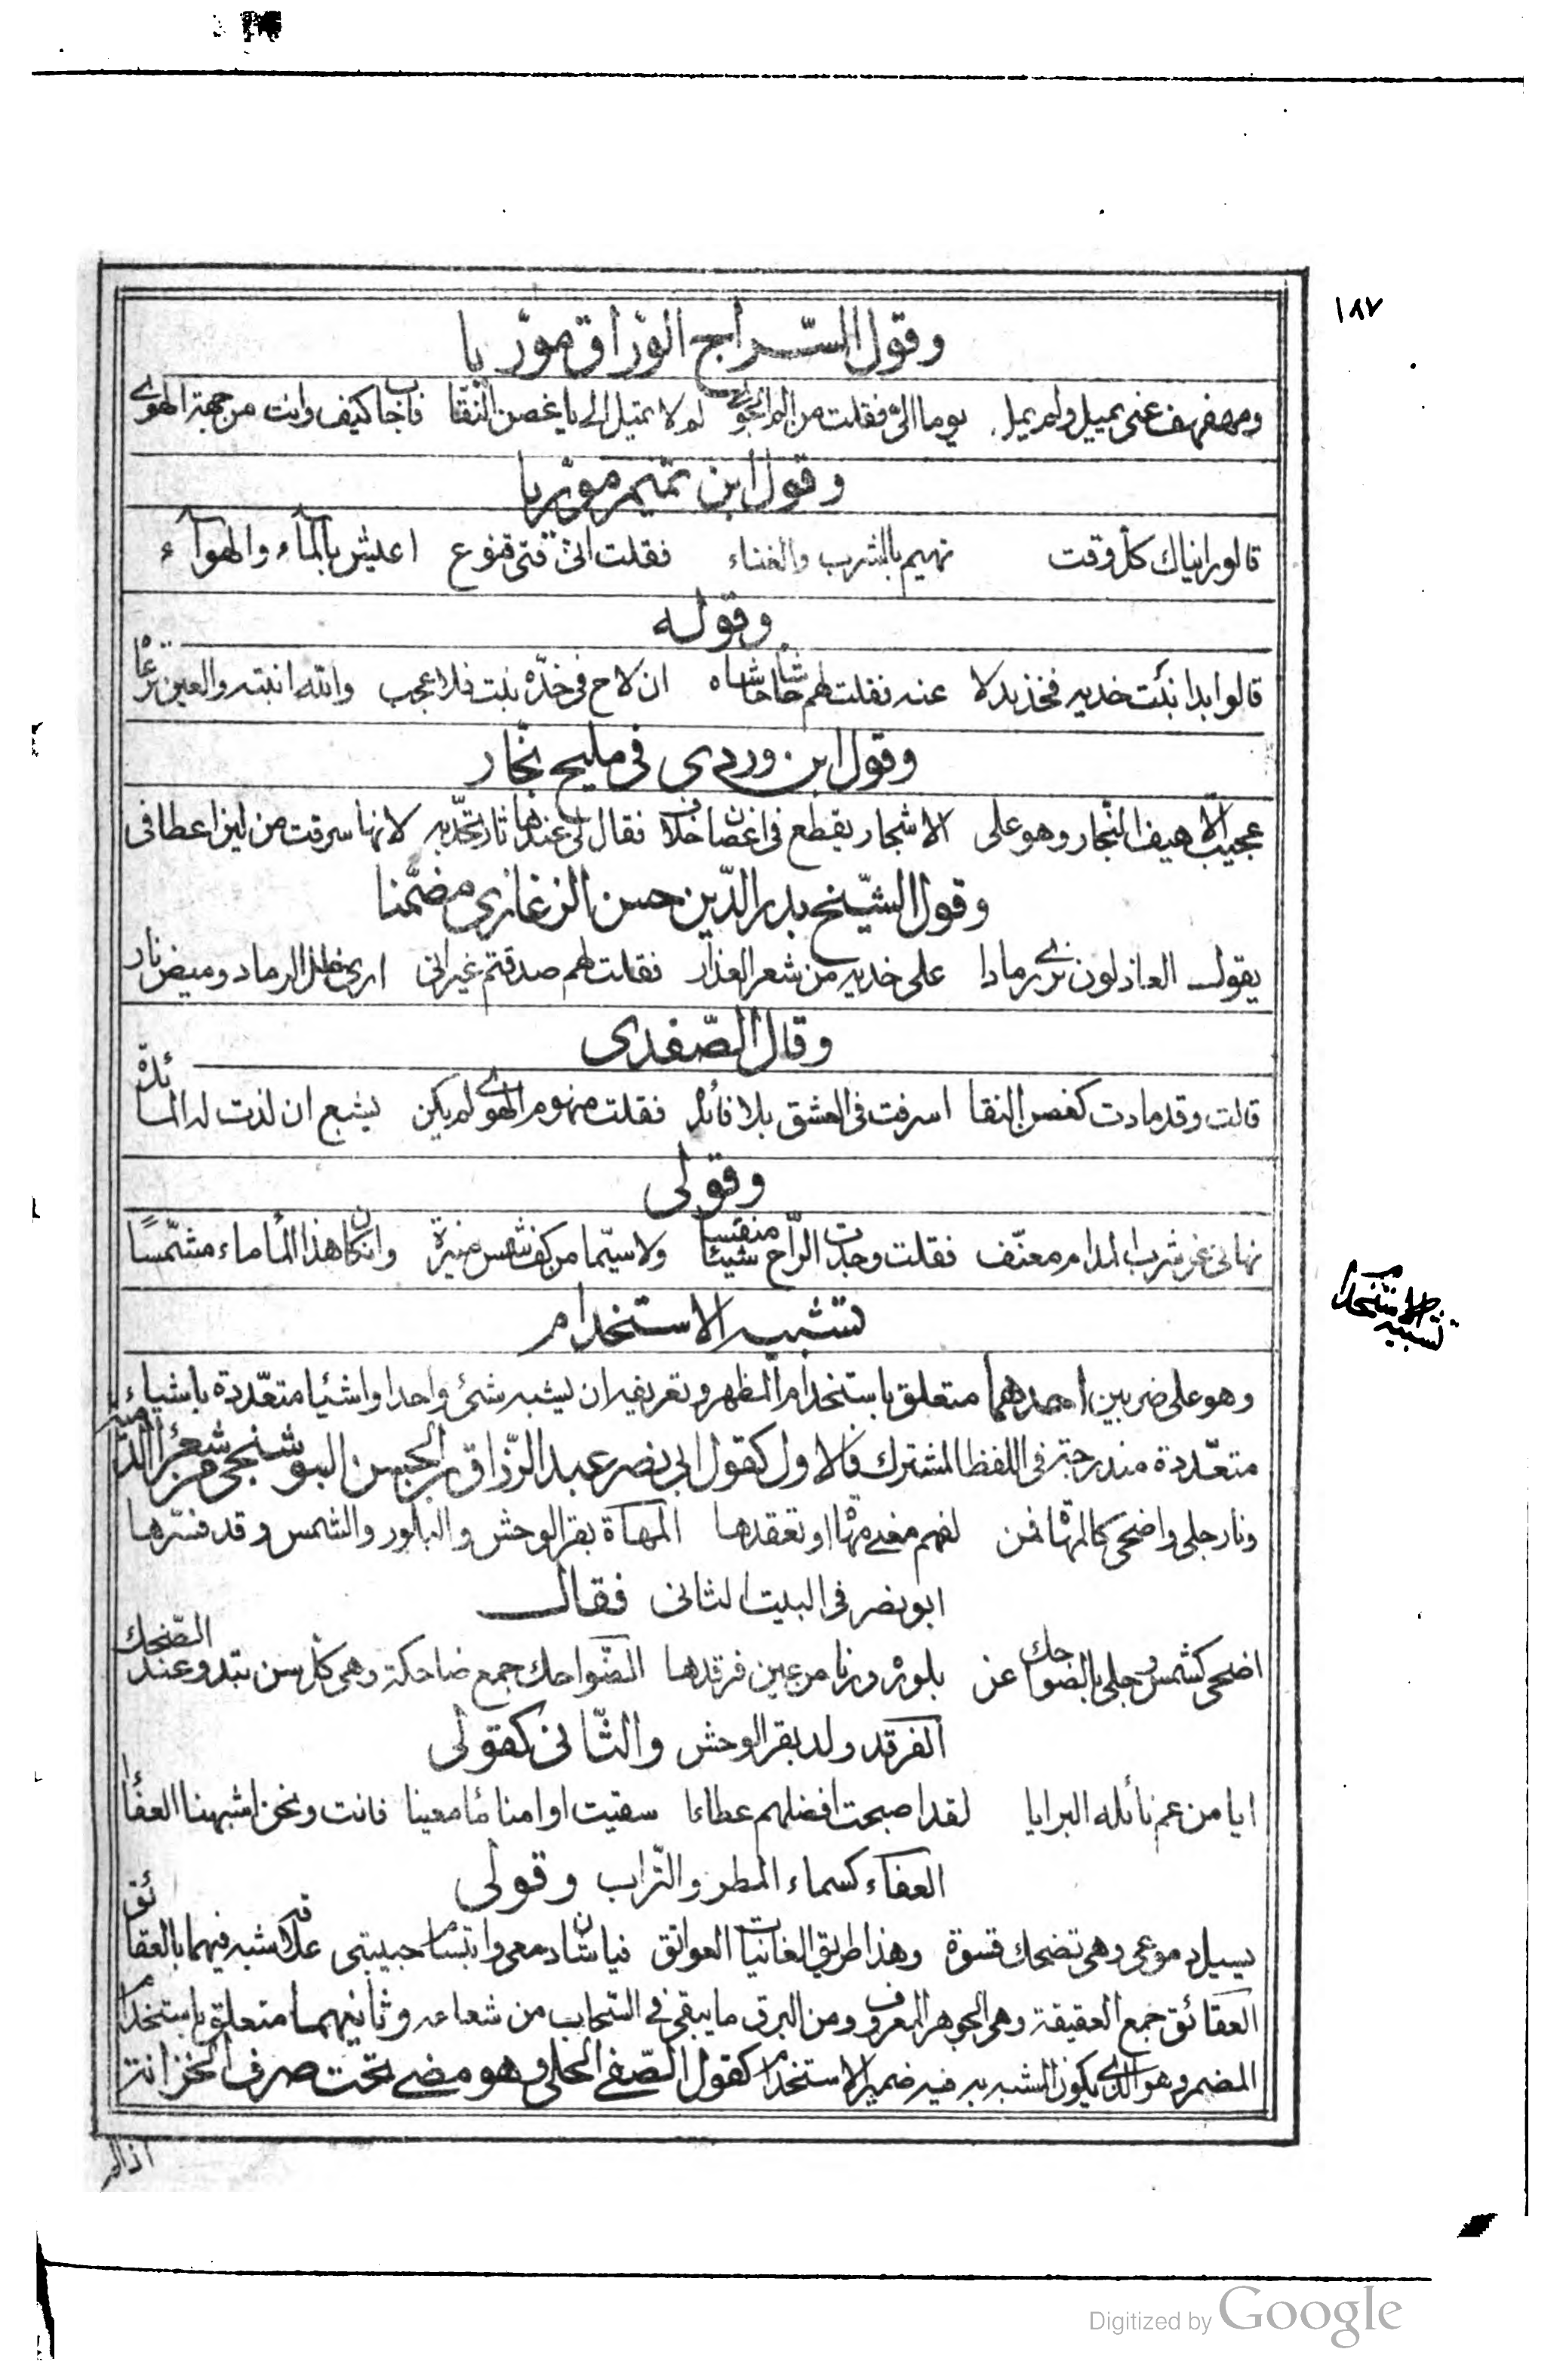 ١٨٧
وقول السّراج الورّاق مورّيا
ومهفهف عنى يميل ولم يمل يوما الىّ فقلت من الم الجوى لم لا تميل الى يا غصن النقا فاجاب كيف وانت من جهة الهوى
وقول ابن تميم مورّيا
قالو رايناك كل وقت تهيم بالشرب والغناء فقلت انى فتى قنوع اعيش بالمآء والهوآء
وقوله
قالوا بدا نبت خديه فخذ بدلا عنه فقلت لهم حاشاه حاشاه ان لاح فى خدّه نبت فلا عجب والله انبته والعين ترعاه
وقول ابن وردى فى مليح نجّار
عجيب الاهيف النجّار وهو على الاشجار يقطع فى اغصان خلاف فقال لى عندها ثار تحدّيه لانها سرقت من لين اعطافى
وقول الشّيخ بدر الدّين حسن الزغارى مضمّنا
يقول العاذلون نرى رمادا على خديه من شعر العذار فقلت لهم صدقتم غير انى ارى خلل الرماد وميض نار
وقال الصّفدى
قالت وقد مادت كغصن النقا اسرفت فى العشق بلا فائده فقلت منهوم الهوى لم يكن يشبع ان لذت له المائدّه
وقولى
نهانى عن شرب المدام معنّف فقلت وجدت الرّاح شيئا منفّسا ولا سيّما من كف شمس منيرة وان كان هذا الما ماء مشمّسًا
تشبيه الاستخدام
تشبيه الاستخدام
وهو على ضربين احدهما متعلق باستخدام المظهر وتعريفه ان يشبه شئ واحد او اشيا متعدّدة باشياء
متعّددة مندرجة فى اللفظ المشترك فالاول كقول ابى نصر عبد الرّزاق بن الحسن البوشنجى من شعرآء الدمية
ونار جلى واضحى كالمهاة فمن لفهم معنى مهاة او تعقدها المهاة بقر الوحش والبلور والشمس وقد فسّرها
ابو نصر فى البيت الثانى فقال
اضحى كشمس وجلى بالضواحك عن بلوره ورنا من عين فرقدها الضّواحك جمع ضاحكة وهى كل سن تبدو عند الضّحك
الفرقد ولد بقر الوحش والثّانى كقولى
ايا من عم نائله البرايا لقد اصبحت افضلهم عطاءا سقيت اوامنا مّاء معينا فانت ونحن اشبهنا العفاء
العفآء كسماء المطر والتّراب وقولى
يسيل دموعى وهى تضحك قسوة وهذا طريق الغانيات العواتق فيا شان دمعى وابتسام حبيبتى علاقة شبه فيهما بالعقائق
العقائق جمع العقيقة وهى الجوهر المعروف ومن البرق ما يبقى فى السّحاب من شعاعه وثانيهما متعلق باستخدام
المضمر وهو الذى يكون المشبه به فيه ضمير الاستخدام كقول الصّفى الحلى وهو مضى تحت صرف الخزانة
Digitized by Google